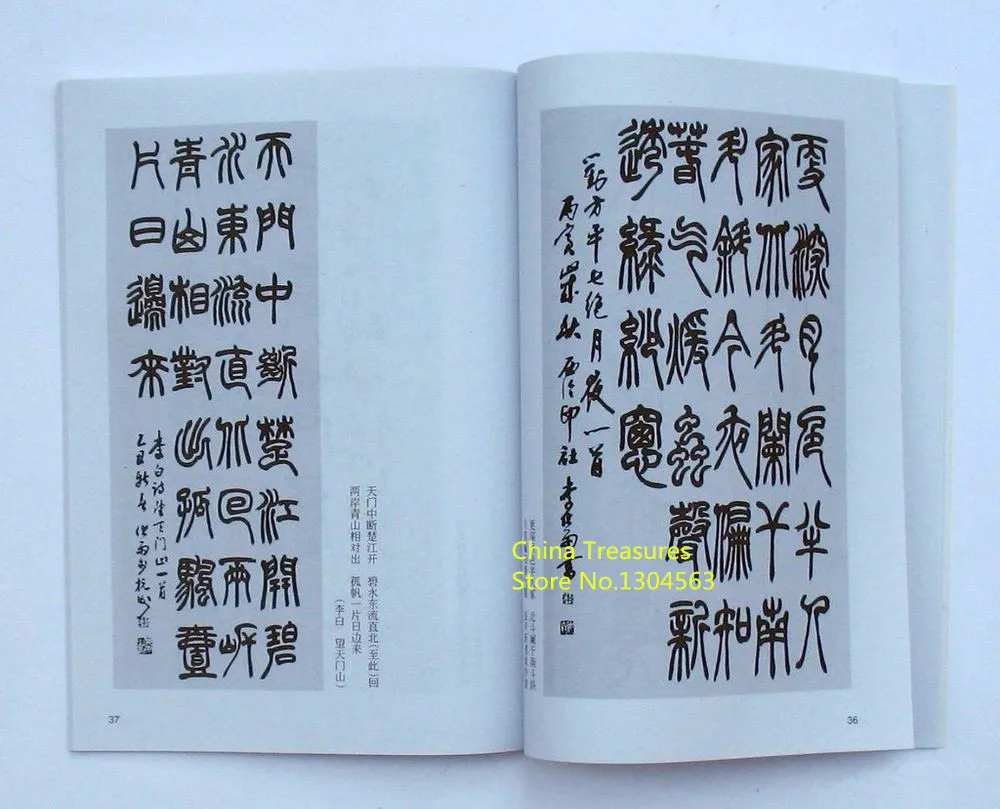 更深月色半人
家北斗闌干南
斗斜今夜偏知
春气暖蟲聲新
透綠紗窗
劉方平七绝月夜一首
丙寅歲秋 西泠印社 李伏雨書
北斗阑干南斗斜
36
天門中斷楚江開碧
水東流直北回兩岸
青山相對出孤颿壹
片日邊來
李白诗望天门山一首
乙丑秋 伏雨书 杭州
天门中断楚江开 碧水东流直北(至此)回
两岸青山相对出 孤帆一片日边来
(李白 望天门山)
37
China Treasures
Store No.1304563